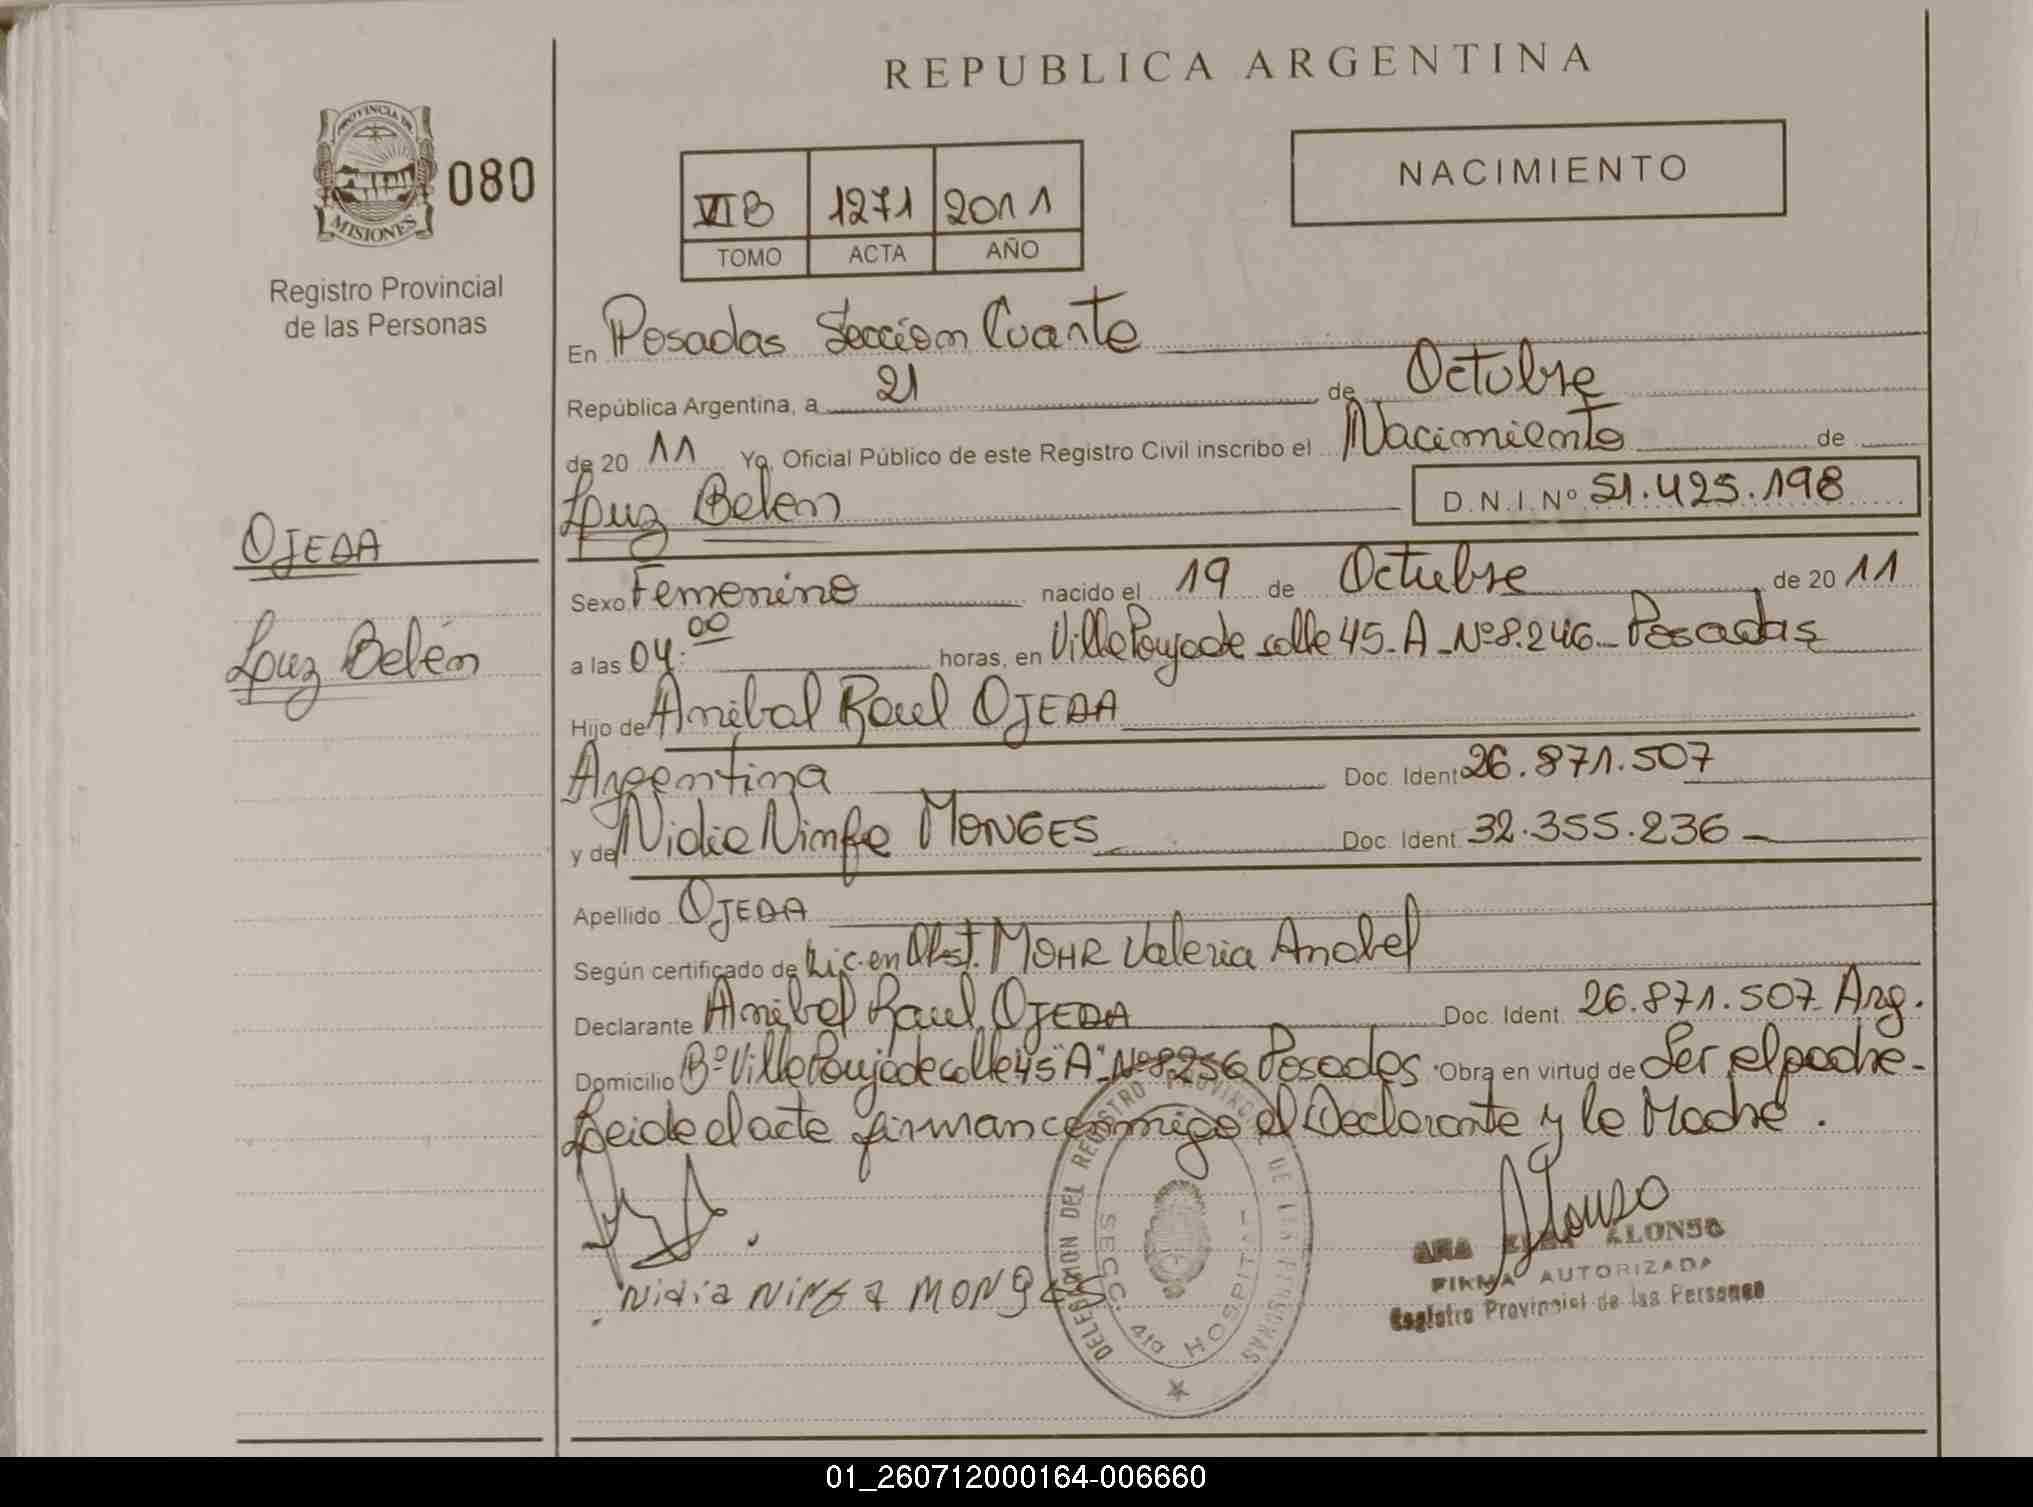 REPUBLICA ARGENTINA
PROVINCIA DE
MISIONES
080
Registro Provincial
de las Personas
VI B 1271 2011
TOMO ACTA AÑO
NACIMIENTO
En Posadas Sección Cuarta
República Argentina, a 21 de Octubre
de 20 11 Yo, Oficial Público de este Registro Civil inscribo el Nacimiento de
Luz Belén D.N.I.Nº 51.425.198
OJEDA
Luz Belén
Sexo Femenino nacido el 19 de Octubre de 20 11
a las 04:00 horas, en Villa Poujade calle 45-A-Nº8.246- Posadas
Hijo de Anibal Raul OJEDA
Argentina Doc. Ident 26.871.507
y de Nidia Ninfa MONGES Doc. Ident. 32.355.236
Apellido OJEDA
Según certificado de Lic. en Obst. MOHR Valeria Anabel
Declarante Anibal Raul OJEDA Doc. Ident. 26.871.507 Arg.
Domicilio Bº Villa Poujade calle 45 "A" Nº8.256 Posadas Obra en virtud de Ser el padre-
Leida el acta firman conmigo el Declarante y la Madre.
Nidia NINFA MONGES
DELEGACION DEL REGISTRO PROVINCIAL DE LAS PERSONAS
SECC. 4ta HOSPITAL
Alonso
ANA ALONSO
FIRMA AUTORIZADA
Registro Provincial de las Personas
01_260712000164-006660